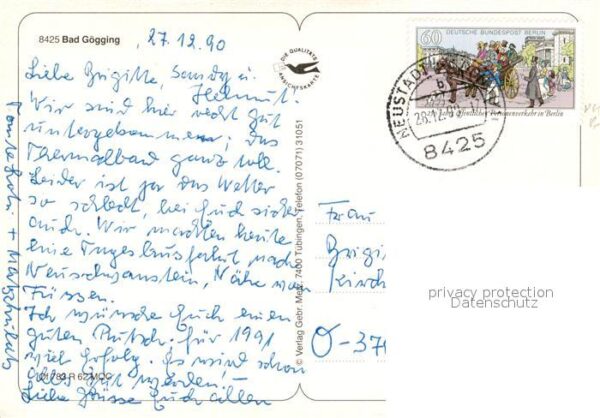 8425 Bad Gögging
27.12.90
Liebe Brigitte, Sandy u.
Helmut.
Wir sind hier recht gut
untergekommen, das
Thermalbad ganz toll.
Leider ist ja das Wetter
so schlecht, bei Euch sicher
auch. Wir machten heute
eine Tagesausfahrt nach
Neuschwanstein, Nähe von
Füssen.
Ich wünsche Euch einen
guten Rutsch. für 1991
viel Erfolg. Es wird schon
alles gut werden!
Liebe Grüsse Euch allen
Tante
DIE QUALITÄTS
ANSICHTSKARTE
© Verlag Gebr. Metz, 7400 Tübingen, Telefon (07071) 31051
60 DEUTSCHE BUNDESPOST BERLIN
NEUSTADT
8425
Frau
privacy protection
Datenschutz